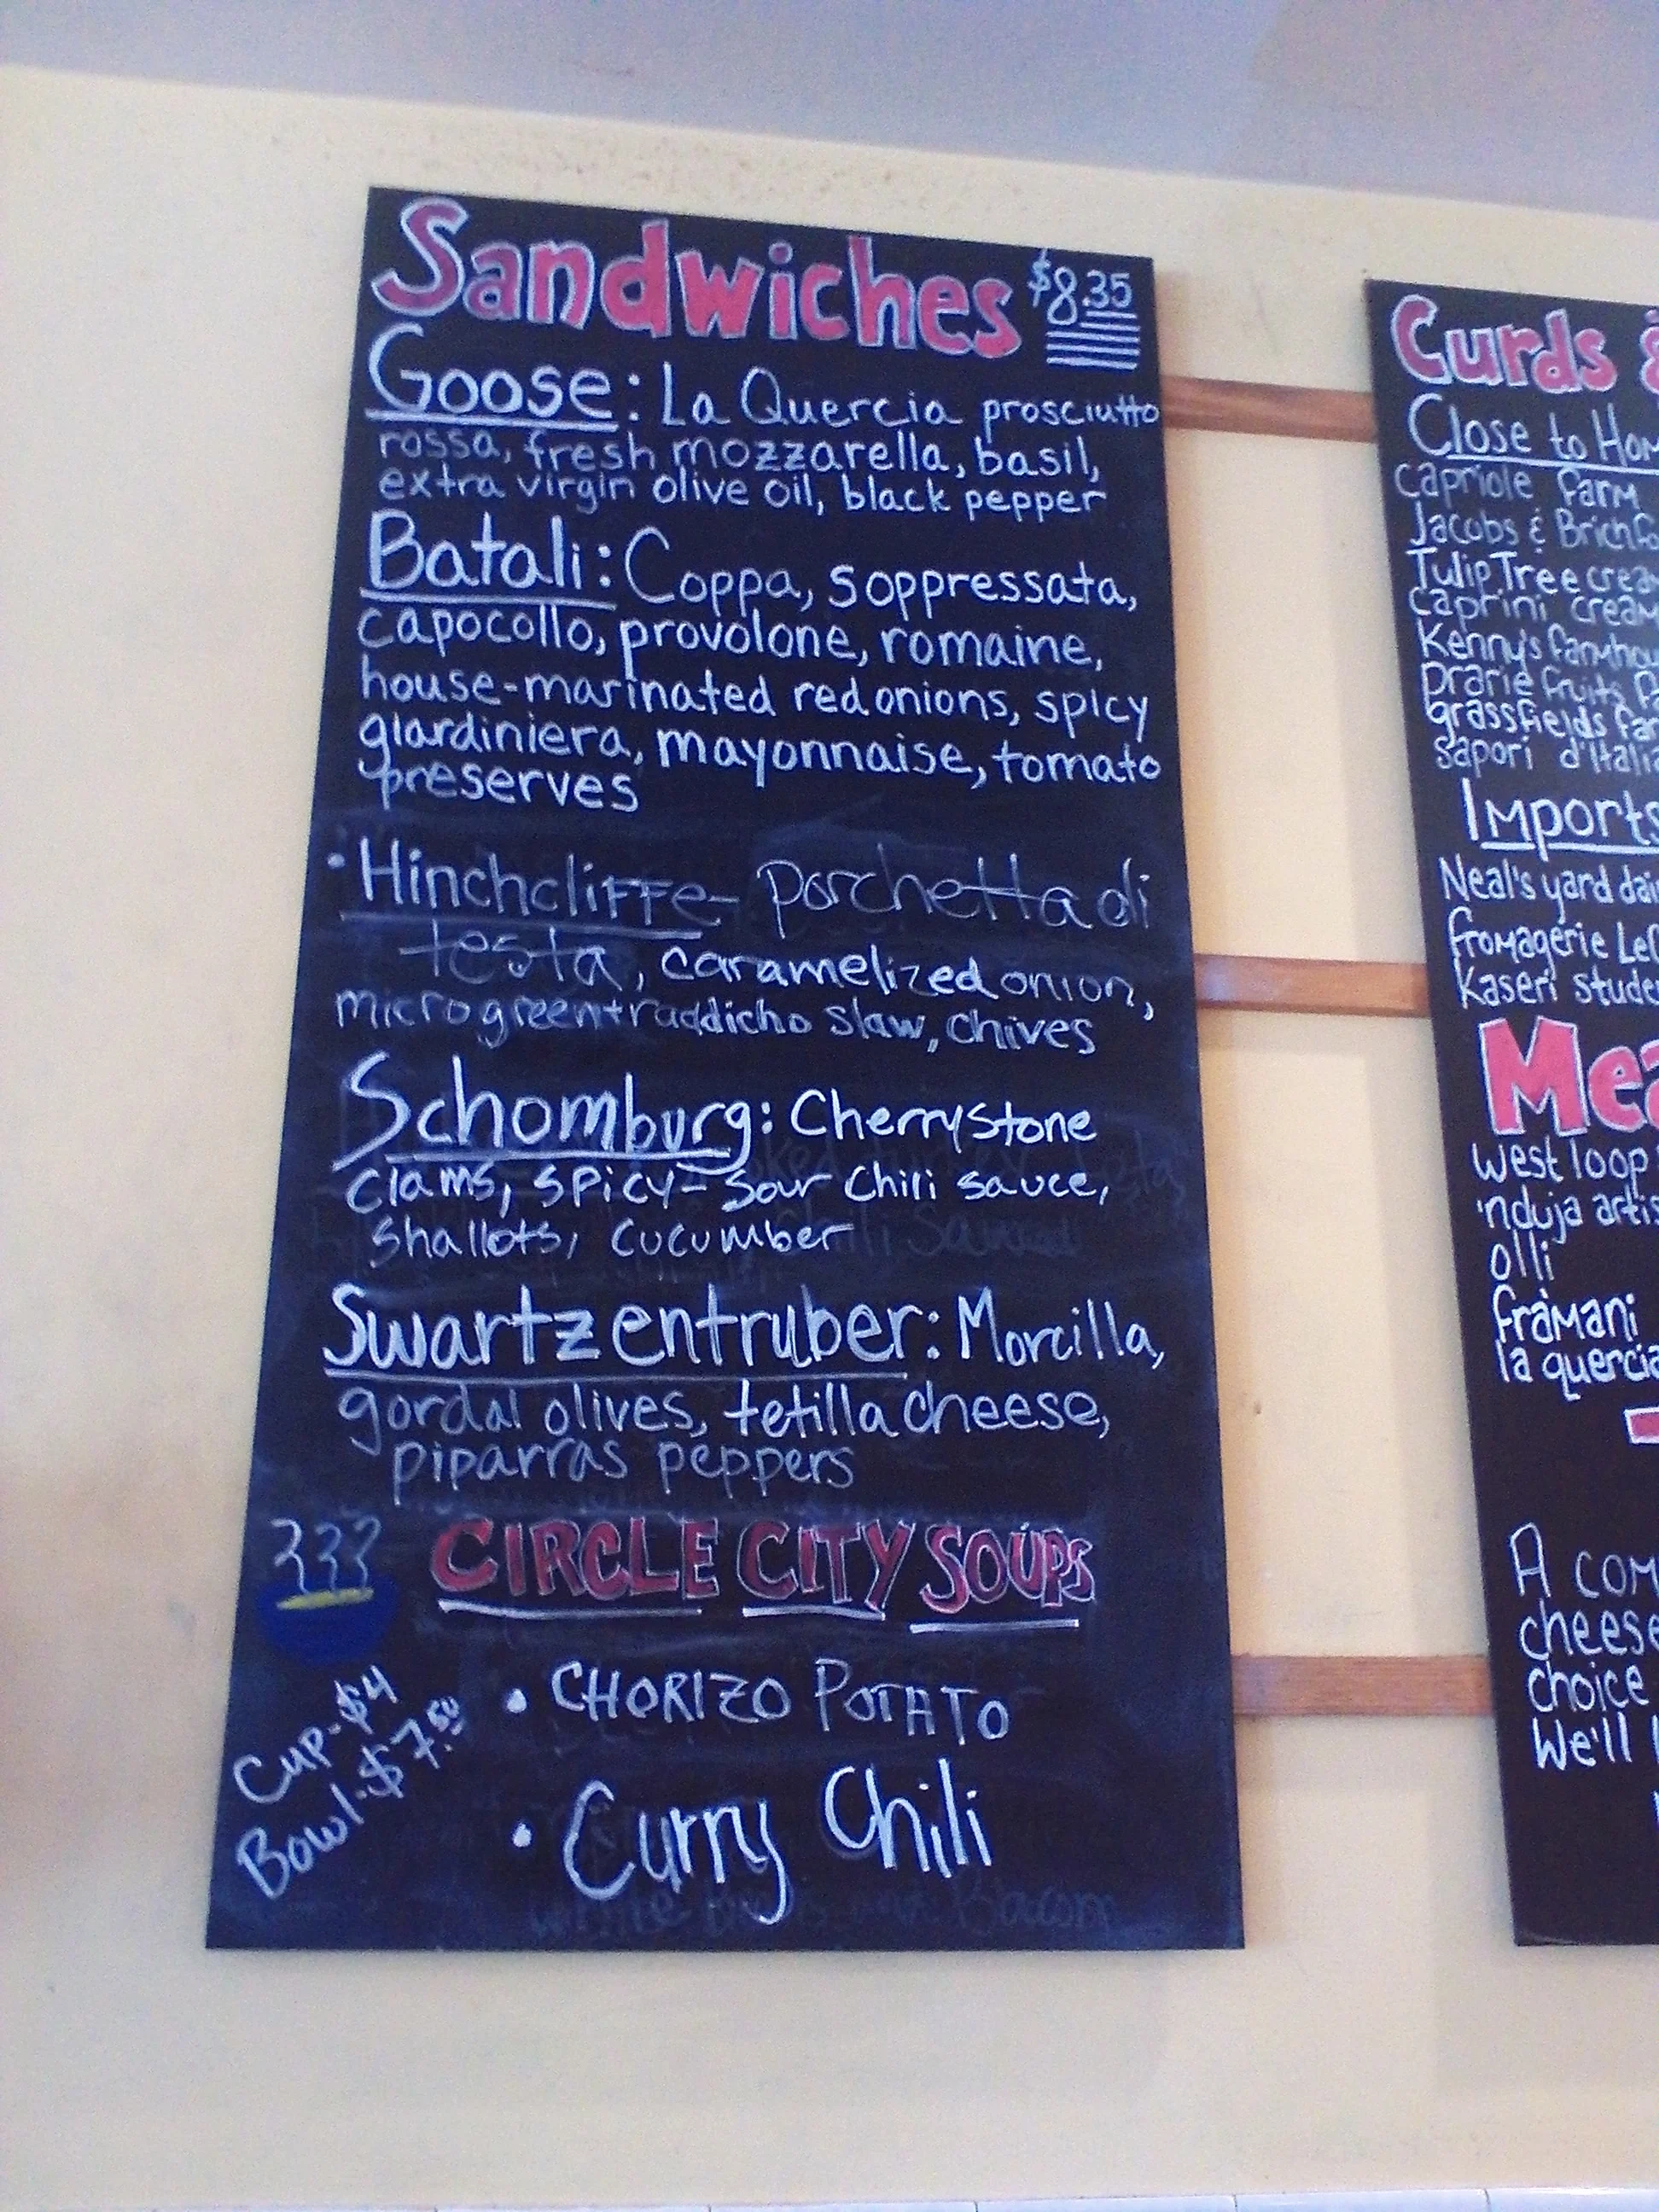 Sandwiches $8.35
Goose: La Quercia prosciutto
rossa, fresh mozzarella, basil,
extra virgin olive oil, black pepper
Batali: Coppa, soppressata,
capocollo, provolone, romaine,
house-marinated red onions, spicy
giardiniera, mayonnaise, tomato
preserves
• Hinchcliffe- porchetta di
testa, caramelized onion,
microgreen+raddicho slaw, chives
Schomburg: Cherrystone
clams, spicy-sour chili sauce,
shallots, cucumber
Swartzentruber: Morcilla,
gordal olives, tetilla cheese,
piparras peppers
CIRCLE CITY SOUPS
Cup-$4
Bowl-$7.50
• CHORIZO POTATO
• Curry Chili
Curds &
Close to Hom
capriole farm
Jacobs & Brichfo
Tulip Tree crea
caprini cream
Kenny's farmhou
prarie fruits fa
grassfields far
sapori d'Italia
Imports
Neal's yard dair
fromagerie Le
Kaseri stude
Mea
west loop
'nduja artis
olli
fràmani
la quercia
A com
cheese
choice
We'll